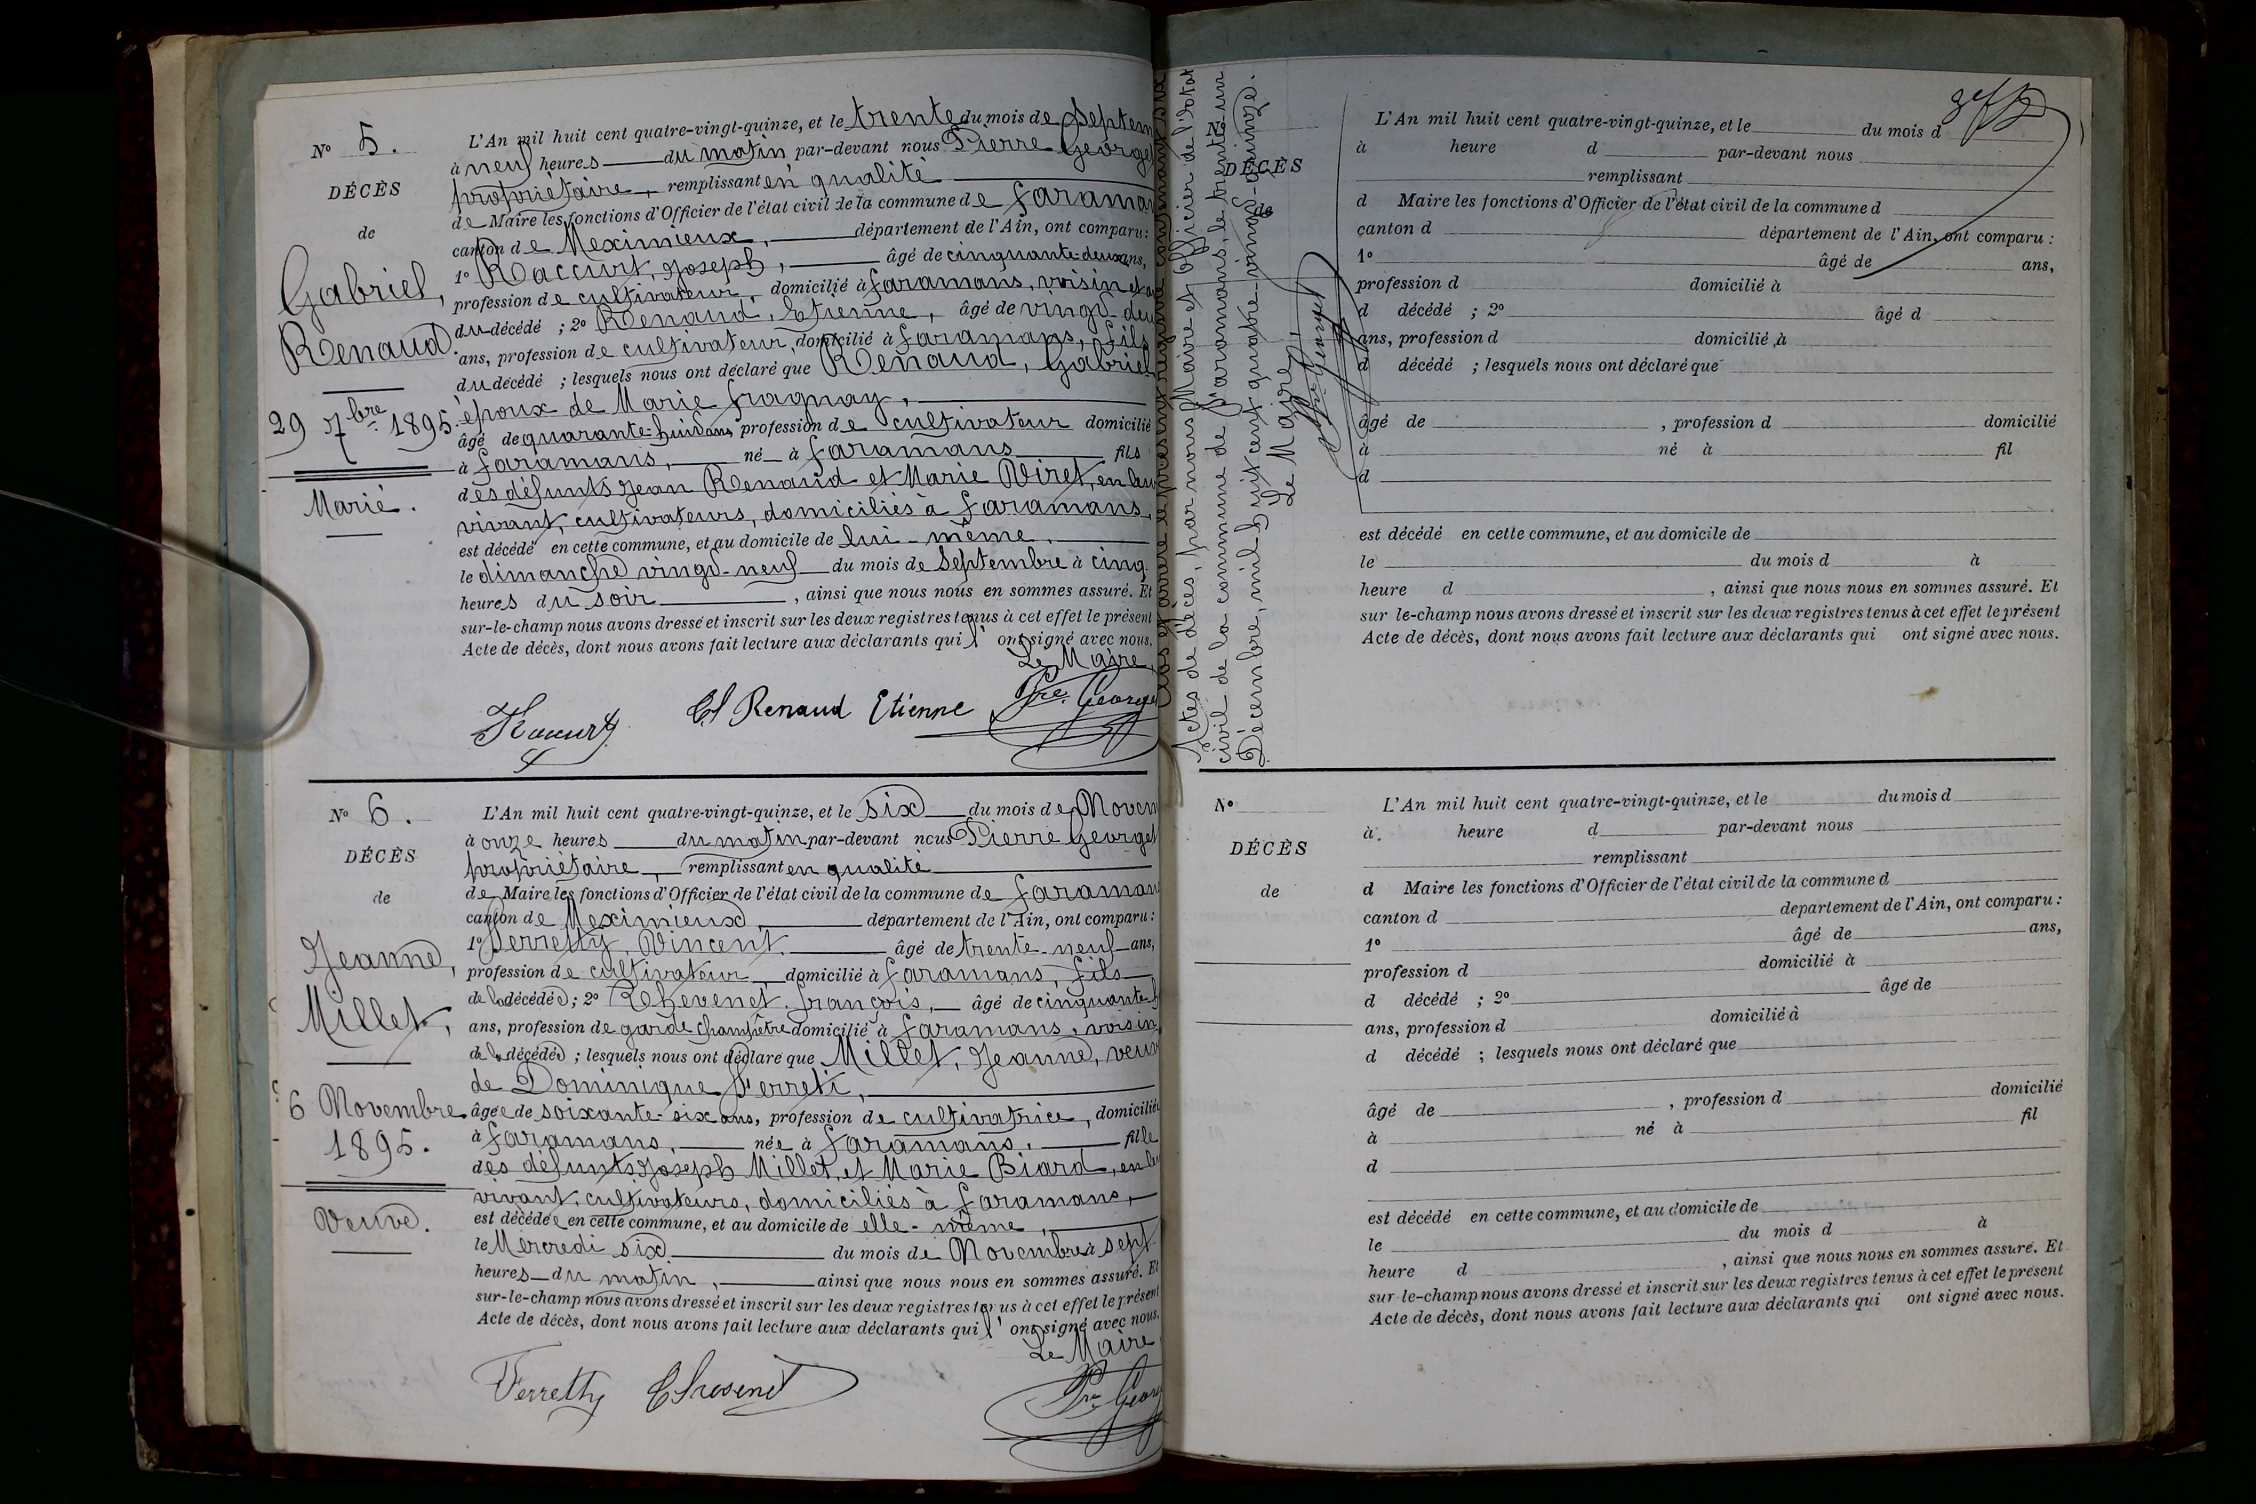 N° 5.
DÉCÈS
de
Gabriel,
Renaud
29 7bre 1895.
Marié.
L'An mil huit cent quatre-vingt-quinze, et le trente du mois de Septem
à neuf heures du matin par-devant nous Pierre George
propriétaire, remplissant en qualité
de Maire les fonctions d'Officier de l'état civil de la commune de faraman
canton de Meximieux, département de l'Ain, ont comparu:
1° Raccurt, Joseph, âgé de cinquante-deux ans,
profession de cultivateur, domicilié à faramans, voisin
du décédé ; 2° Renaud, Etienne, âgé de vingt-deux
ans, profession de cultivateur, domicilié à faramans, fils
du décédé ; lesquels nous ont déclaré que Renaud, Gabriel
époux de Marie fragnay,
âgé de quarante-huit ans, profession de cultivateur domicilié
à faramans, né à faramans fils
des défunts Jean Renaud et Marie Viret, en leur
vivant, cultivateurs, domiciliés à faramans,
est décédé en cette commune, et au domicile de lui-même,
le dimanche vingt-neuf du mois de Septembre à cinq
heures du soir, ainsi que nous nous en sommes assuré. Et
sur-le-champ nous avons dressé et inscrit sur les deux registres tenus à cet effet le présent
Acte de décès, dont nous avons fait lecture aux déclarants qui l'ont signé avec nous.
Le Maire,
Raccurt Renaud Etienne Pre. George
N° 6.
DÉCÈS
de
Jeanne,
Millet,
6 Novembre
1895.
Veuve.
L'An mil huit cent quatre-vingt-quinze, et le six du mois de Novem
à onze heures du matin par-devant nous Pierre George
propriétaire, remplissant en qualité
de Maire les fonctions d'Officier de l'état civil de la commune de faraman
canton de Meximieux, département de l'Ain, ont comparu:
1° Ferretty, Vincent. âgé de trente-neuf ans,
profession de cultivateur, domicilié à faramans, fils
de la décédée; 2° Chevenet. françois, âgé de cinquante
ans, profession de garde champêtre domicilié à faramans, voisin
de la décédée ; lesquels nous ont déclaré que Millet, Jeanne, veuv
de Dominique Ferreti,
âgée de soixante-six ans, profession de cultivatrice, domicilié
à faramans, née à faramans, fille
des défunts Joseph Millet, et Marie Biard, en leu
vivant, cultivateurs, domiciliés à faramans,
est décédée en cette commune, et au domicile de elle-même,
le Mercredi six du mois de Novembre à sept
heures du matin, ainsi que nous nous en sommes assuré. Et
sur-le-champ nous avons dressé et inscrit sur les deux registres tenus à cet effet le présent
Acte de décès, dont nous avons fait lecture aux déclarants qui l'ont signé avec nous.
Le Maire
Ferretty Chevenet Pre Geor
Clos et arrêté le présent registre contenant six
Actes de décès, par nous Maire et Officier de l'état
civil de la commune de faramans, le trente-un
Décembre, mil huit cent quatre-vingt-quinze.
Le Maire,
Pre George
N°
DÉCÈS
de
L'An mil huit cent quatre-vingt-quinze, et le du mois d
à heure d par-devant nous
remplissant
d Maire les fonctions d'Officier de l'état civil de la commune d
canton d département de l'Ain, ont comparu :
1° âgé de ans,
profession d domicilié à
d décédé ; 2° âgé d
ans, profession d domicilié à
d décédé ; lesquels nous ont déclaré que
âgé de , profession d domicilié
à né à fil
d
est décédé en cette commune, et au domicile de
le du mois d à
heure d , ainsi que nous nous en sommes assuré. Et
sur le-champ nous avons dressé et inscrit sur les deux registres tenus à cet effet le présent
Acte de décès, dont nous avons fait lecture aux déclarants qui ont signé avec nous.
N°
DÉCÈS
de
L'An mil huit cent quatre-vingt-quinze, et le du mois d
à heure d par-devant nous
remplissant
d Maire les fonctions d'Officier de l'état civil de la commune d
canton d departement de l'Ain, ont comparu :
1° âgé de ans,
profession d domicilié à
d décédé ; 2° âgé de
ans, profession d domicilié à
d décédé ; lesquels nous ont déclaré que
âgé de , profession d domicilié
à né à fil
d
est décédé en cette commune, et au domicile de
le du mois d à
heure d , ainsi que nous nous en sommes assuré. Et
sur-le-champ nous avons dressé et inscrit sur les deux registres tenus à cet effet le présent
Acte de décès, dont nous avons fait lecture aux déclarants qui ont signé avec nous.